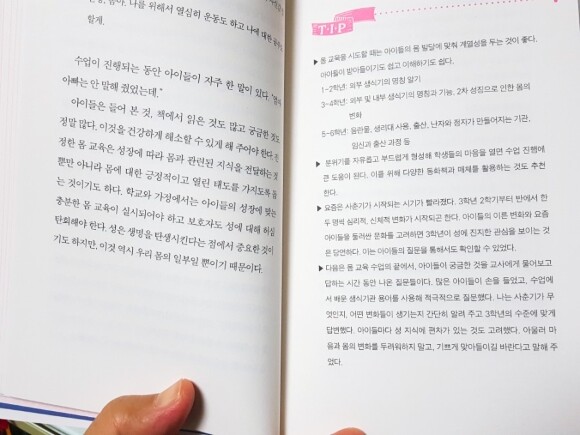 나를 위해서 열심히 운동도 하고 나에 대한
할게.
수업이 진행되는 동안 아이들이 자주 한 말이 있다. "엄마
아빠는 안 말해 줬었는데."
아이들은 들어 본 것, 책에서 읽은 것도 많고 궁금한 것도
정말 많다. 이것을 건강하게 해소할 수 있게 해 주어야 한다. 진
정한 몸 교육은 성장에 따라 몸과 관련된 지식을 전달하는 것
뿐만 아니라 몸에 대한 긍정적이고 열린 태도를 가지도록 돕
는 것이기도 하다. 학교와 가정에서는 아이들의 성장에 맞는
충분한 몸 교육이 실시되어야 하고 보호자도 성에 대해 허심
탄회해야 한다. 성은 생명을 탄생시킨다는 점에서 중요한 것이
기도 하지만, 이것 역시 우리 몸의 일부일 뿐이기 때문이다.
T·I·P
▶ 몸 교육을 시도할 때는 아이들의 몸 발달에 맞춰 계열성을 두는 것이 좋다.
아이들이 받아들이기도 쉽고 이해하기도 쉽다.
1-2학년: 외부 생식기의 명칭 알기
3-4학년: 외부 및 내부 생식기의 명칭과 기능, 2차 성징으로 인한 몸의
변화
5-6학년: 음란물, 생리대 사용, 출산, 난자와 정자가 만들어지는 기관,
임신과 출산 과정 등
▶ 분위기를 자유롭고 부드럽게 형성해 학생들의 마음을 열면 수업 진행에
큰 도움이 된다. 이를 위해 다양한 동화책과 매체를 활용하는 것도 추천
한다.
▶ 요즘은 사춘기가 시작되는 시기가 빨라졌다. 3학년 2학기부터 반에서 한
두 명씩 심리적, 신체적 변화가 시작되곤 한다. 아이들의 이른 변화와 요즘
아이들을 둘러싼 문화를 고려하면 3학년이 성에 진지한 관심을 보이는 것
은 당연하다. 이는 아이들의 질문을 통해서도 확인할 수 있었다.
▶ 다음은 몸 교육 수업의 끝에서, 아이들이 궁금한 것을 교사에게 물어보고
답하는 시간 동안 나온 질문들이다. 많은 아이들이 손을 들었고, 수업에
서 배운 생식기관 용어를 사용해 적극적으로 질문했다. 나는 사춘기가 무
엇인지, 어떤 변화들이 생기는지 간단히 알려 주고 3학년의 수준에 맞게
답변했다. 아이들마다 성 지식에 편차가 있는 것도 고려했다. 아울러 마
음과 몸의 변화를 두려워하지 말고, 기쁘게 맞아들이길 바란다고 말해 주
었다.